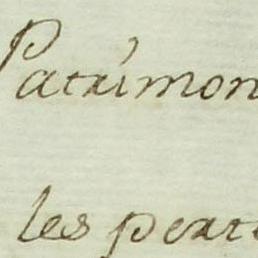 Patrimon
les pert